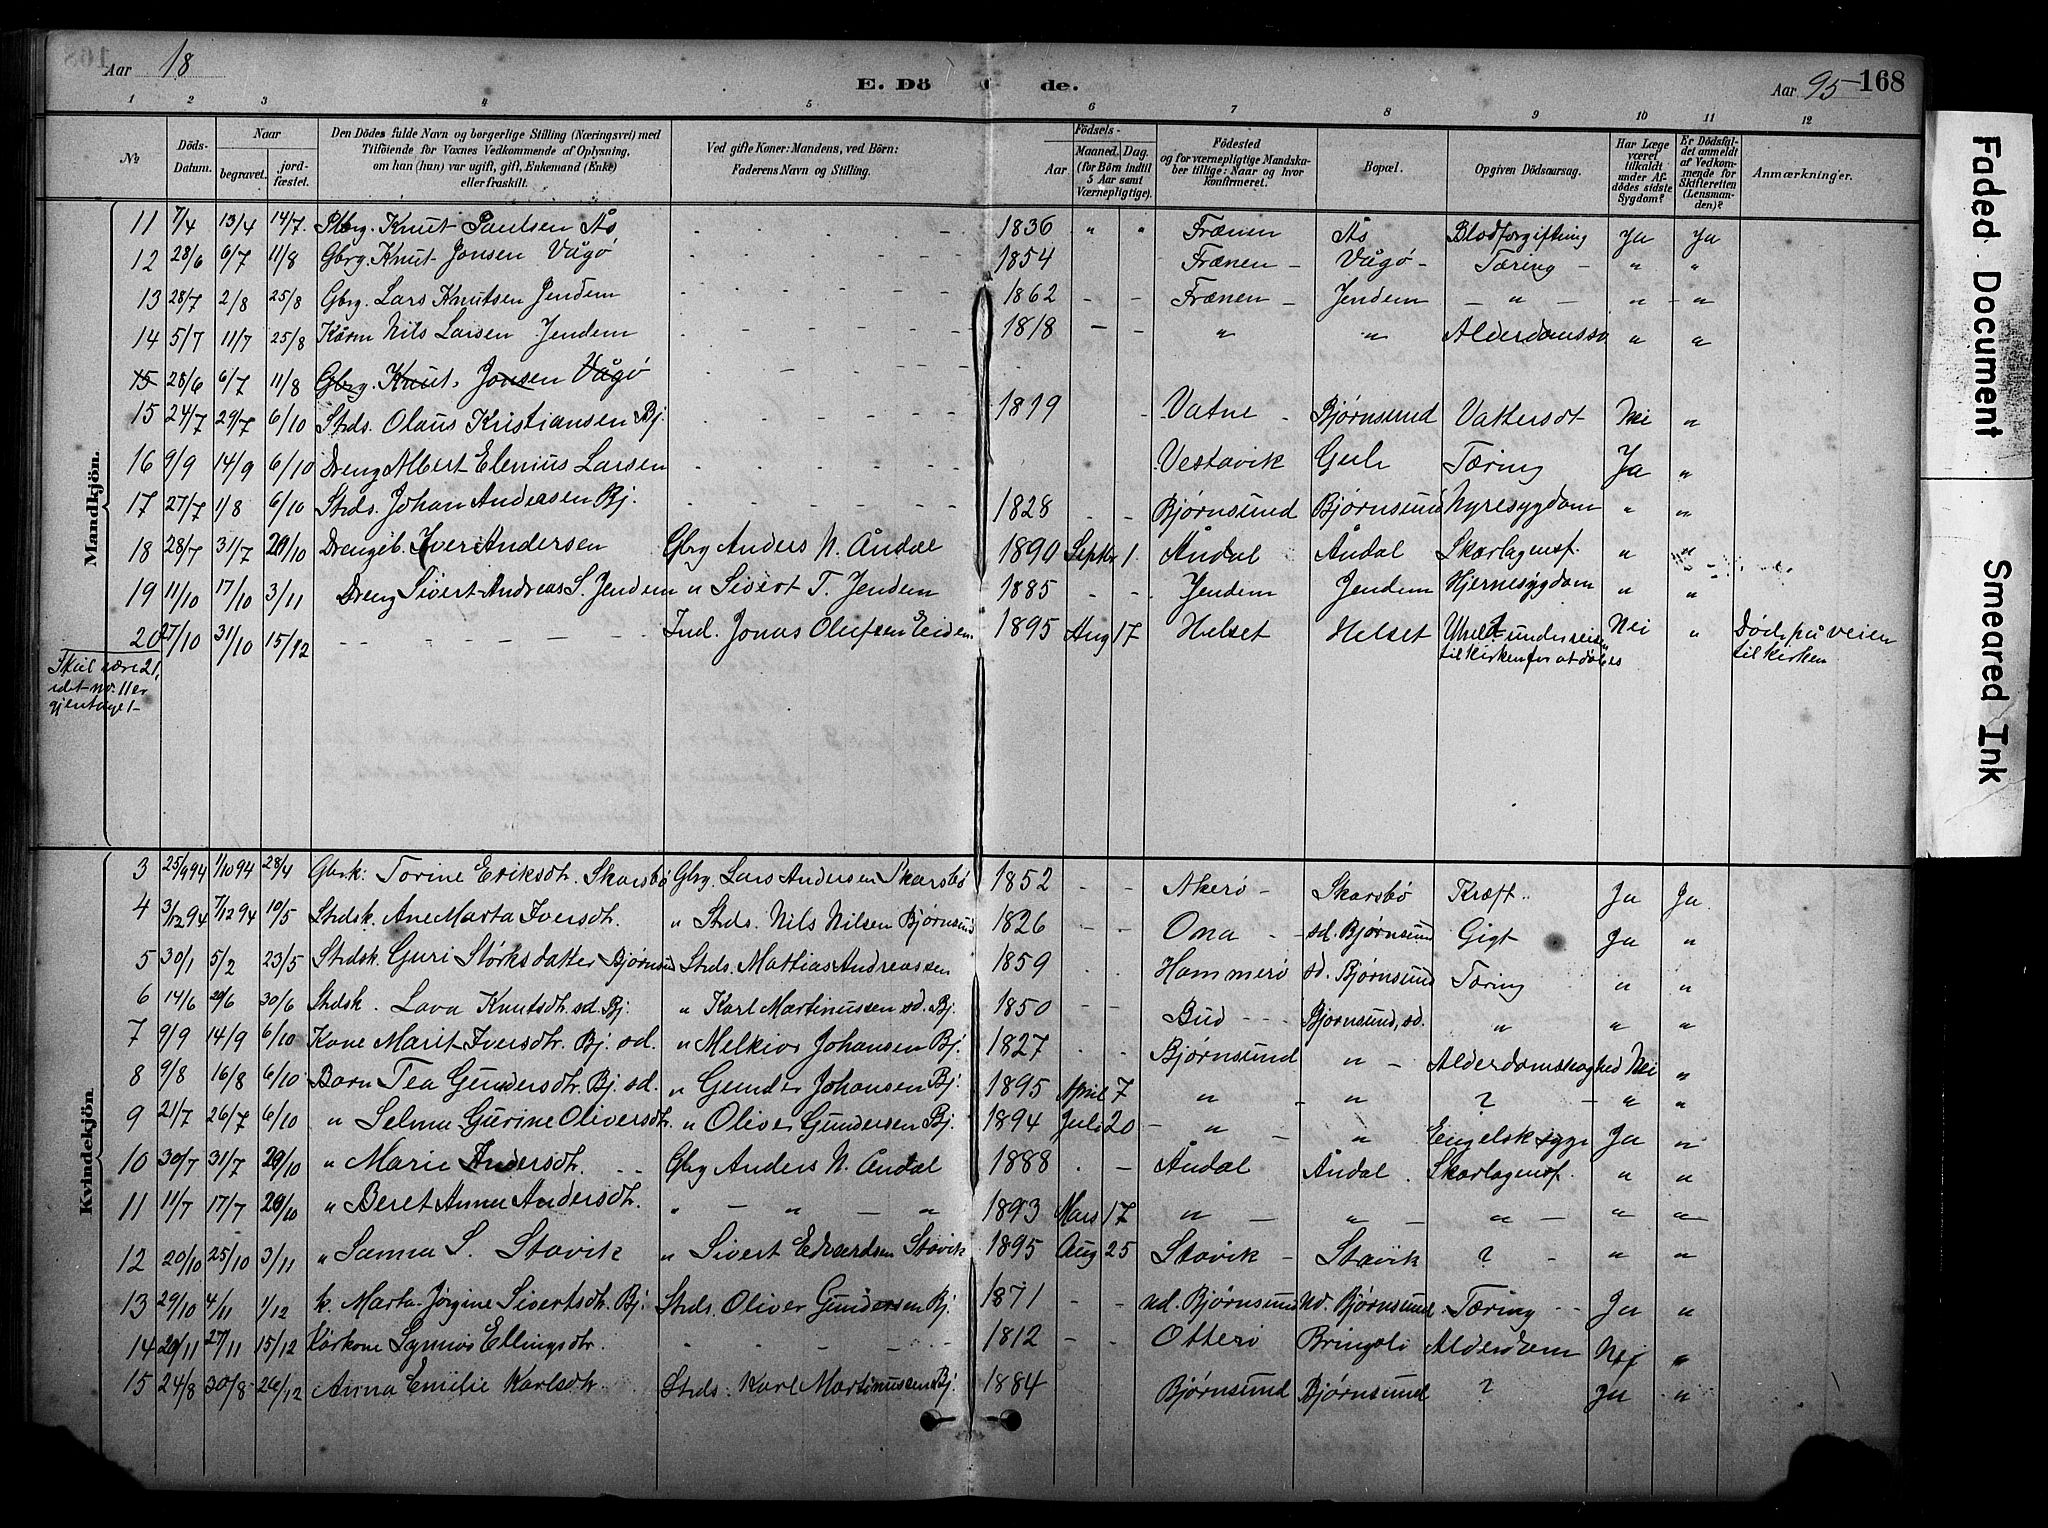 168
Aar 18
E. Dö de.
Aar 95
168
1 2 3 4 5 6 7 8 9 10 11 12
№
Döds-Datum.
Naar
begravet.
jord-fæstet.
Den Dödes fulde Navn og borgerlige Stilling (Næringsvei) med
Tilföiende for Voxnes Vedkommende af Oplysning,
om han (hun) var ugift, gift, Enkemand (Enke)
eller fraskilt.
Ved gifte Koner: Mandens, ved Börn:
Faderens Navn og Stilling.
Födsels-
Aar
Maaned. Dag.
(for Börn indtil
5 Aar samt
Værnepligtige).
Födested
og for værnepligtige Mandska-
ber tillige: Naar og hvor
konfirmeret.
Bopæl.
Opgiven Dödsaarsag.
Har Læge
været
tilkaldt
under Af-
dödes sidste
Sygdom?
Er Dödsfal-
det anmeldt
af Vedkom-
mende for
Skifteretten
(Lensman-
den)?
Anmærkninger.
Mandkjön.
11 7/4 13/4 14/7. Gbrg. Knut Paulsen Ås 1836 " " Frænen Ås Blodforgiftning Ja Ja
12 28/6 6/7 11/8 Gbrg. Knut Jonsen Vågø 1854 Frænen - Vågø - Tæring - " "
13 28/7 2/8 25/8 Gbrg. Lars Knutsen Jendem 1862 - - Frænen - Jendem - " - " - "
14 5/7 11/7 25/8 Kårm Nils Larsen Jendem 1818 - - " " Alderdomssv " "
15 28/6 6/7 11/8 Gbrg. Knut Jonsen Vågø
15 24/7 29/7 6/10 Strds. Olaus Kristiansen Bj. 1819 - Vatne - Bjørnsund Vattersot Nei "
16 9/9 14/9 6/10 Dreng Albert Elenius Larsen Vestavik Gule Tæring Ja "
17 27/7 1/8 6/10 Strds. Johan Andersen Bj. 1828 - - Bjørnsund Bjørnsund Nyresygdom " "
18 28/7 31/7 20/10 Drengeb. Iver Andersen Gbrg Anders N. Åndal 1890 Septbr 1. Åndal Åndal Skarlagensf. " "
19 11/10 17/10 3/11 Dreng Sivert Andreas S. Jendem " Sivert T. Jendem 1885 - - Jendem Jendem Hjernesygdom " "
20 27/10 31/10 15/12 Ind. Jonas Olufsen Eiden 1895 Aug 17 Helset Helset Uheld under reisen Nei " Død på veien
til kirken for at døbes til kirken
Skal være 21,
idet no. 11 er
gjentaget
Kvindekjön
3 25/9 94 1/10 94 28/4 Gbrk: Torine Eriksdtr. Skarsbø Gbrg. Lars Andersen Skarsbø 1852 - - Akerø - Skarsbø Kræft Ja Ja
4 3/12 94 7/12 94 10/5 Strdsk. Ane Marta Iversdtr. " Strds. Nils Nilsen Bjørnsund 1826 - - Ona - sd. Bjørnsund Gigt Ja "
5 30/1 5/2 23/5 Strdsk Guri Størksdatter Bjørnsund Strds. Mattias Andreassen 1859 . . Hammerø sd. Bjørnsund Tæring " "
6 14/6 20/6 30/6 Strdsk. Lava Knutsdtr. sd. Bj. " Karl Martinussen sd. Bj. 1850 - - Bud - - Bjørnsund, sd. " " "
7 9/9 14/9 6/10 Kone Marit Iversdtr. Bj. sd. " Melkior Johansen Bj. 1827 . . Bjørnsund " - Alderdomssvaghed Nei "
8 9/8 16/8 6/10 Barn Tea Gundersdtr. Bj. sd. " Gunder Johansen Bj. 1895 April 7 " - " ? - " "
9 21/7 26/7 6/10 " Selma Gurine Oliversdtr. " Oliver Gundersen Bj. 1894 Juli 20 - " - " Engelsk syge Ja "
10 30/7 31/7 20/10 " Marie Andersdtr. Gbrg Anders N. Åndal 1888 . - Åndal Åndal . Skarlagensf. " "
11 11/7 17/7 20/10 " Beret Anna Andersdtr. " - " - " 1893 Mars 17 " - " - " - " "
12 20/10 25/10 3/11 " Sanna S. Stavik " Sivert Edvardsen Stavik 1895 Aug 25 Stavik - Stavik ? - " "
13 29/10 4/11 1/12 k. Marta Jørgine Sivertsdtr. Bj. Strds. Oliver Gundersen Bj. 1871 - - nd. Bjørnsund Nd. Bjørnsund. Tæring - Ja "
14 20/11 27/11 15/12 Kårkone Synnøv Ellingsdtr. 1812 - - Otterø Bringsli Alderdom Nei "
15 24/8 30/8 26/12 Anna Emilie Karlsdtr. Strds. Karl Martinussen Bj. 1884 Bjørnsund Bjørnsund ? Ja "
Faded Document
Smeared Ink